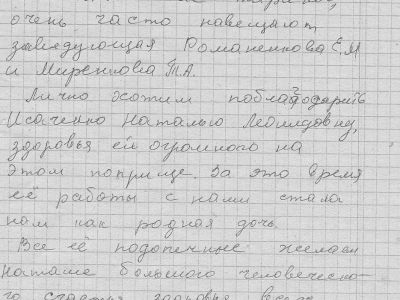 очень часто навещают
заведующая Романенкова Е.М
и Миренкова Т.А.
Лично хотим поблагодарить
Исаченко Наталью Леонидовну,
здоровья ей огромного на
этом поприще. За это время
её работы с нами стала
нам как родная дочь.
Все её подопечные желаем
Наташе большого человеческо-
го счастья, здоровья